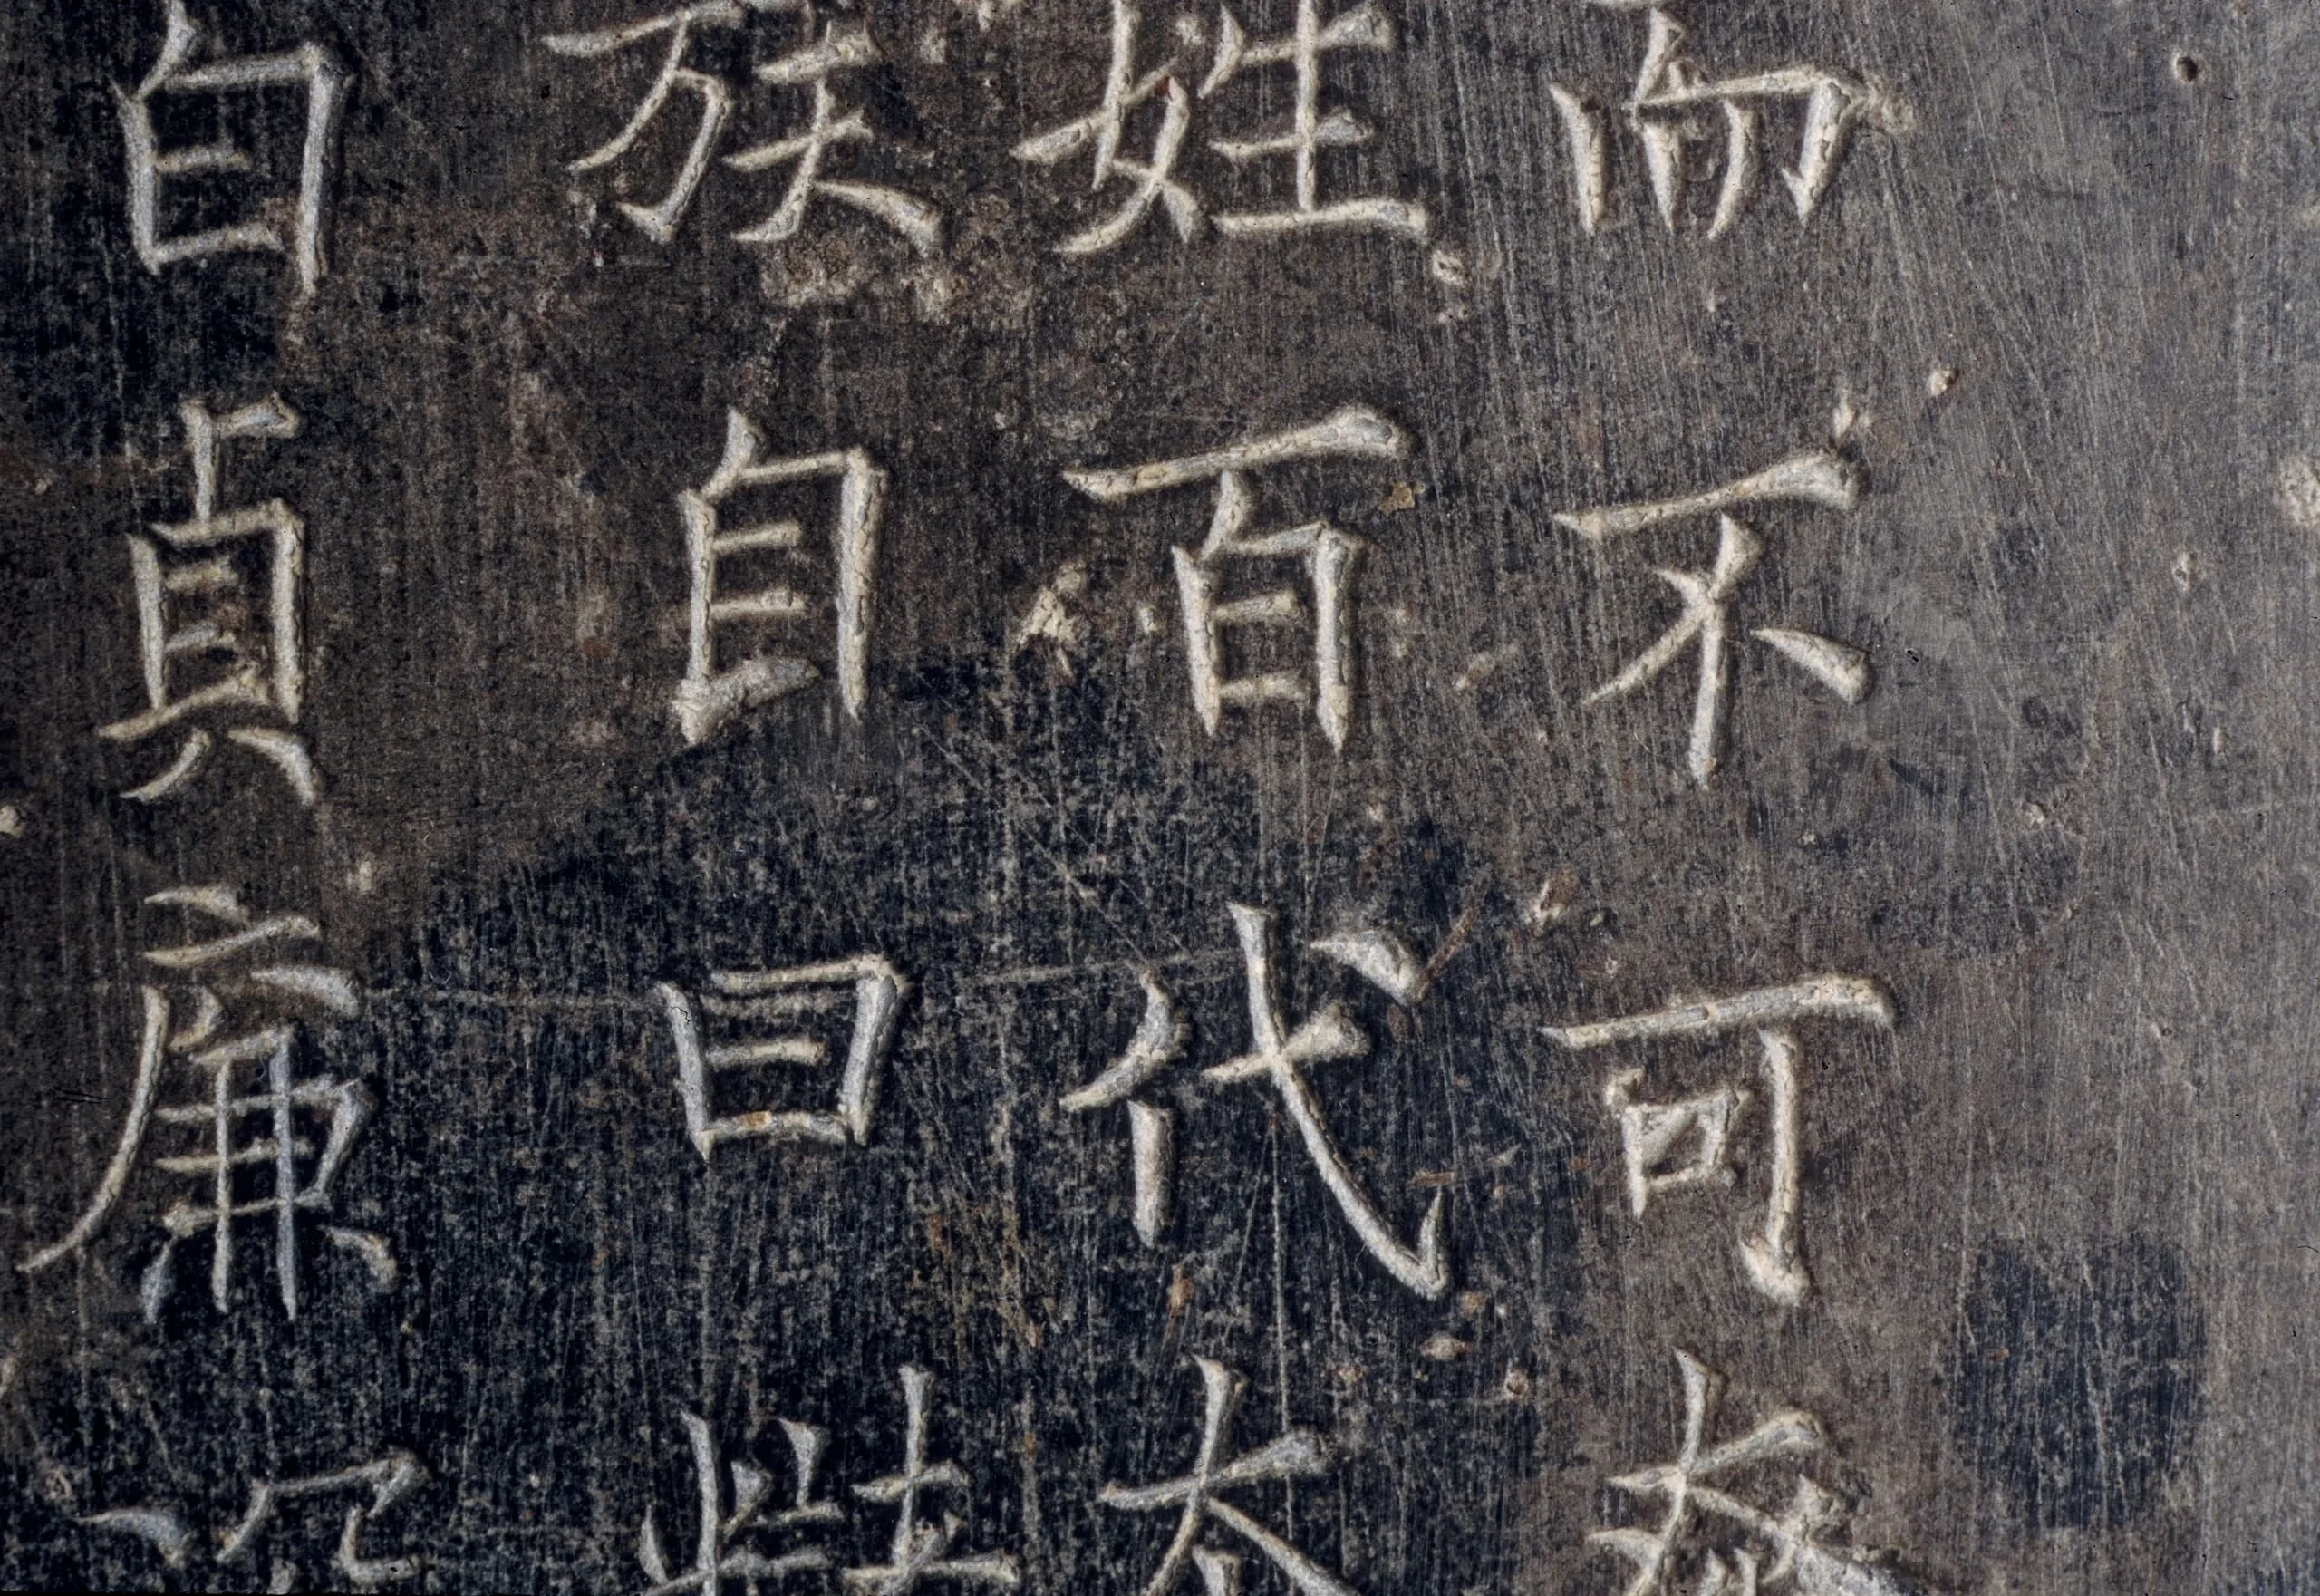 而不可
姓百代太
族自曰
白貞廉